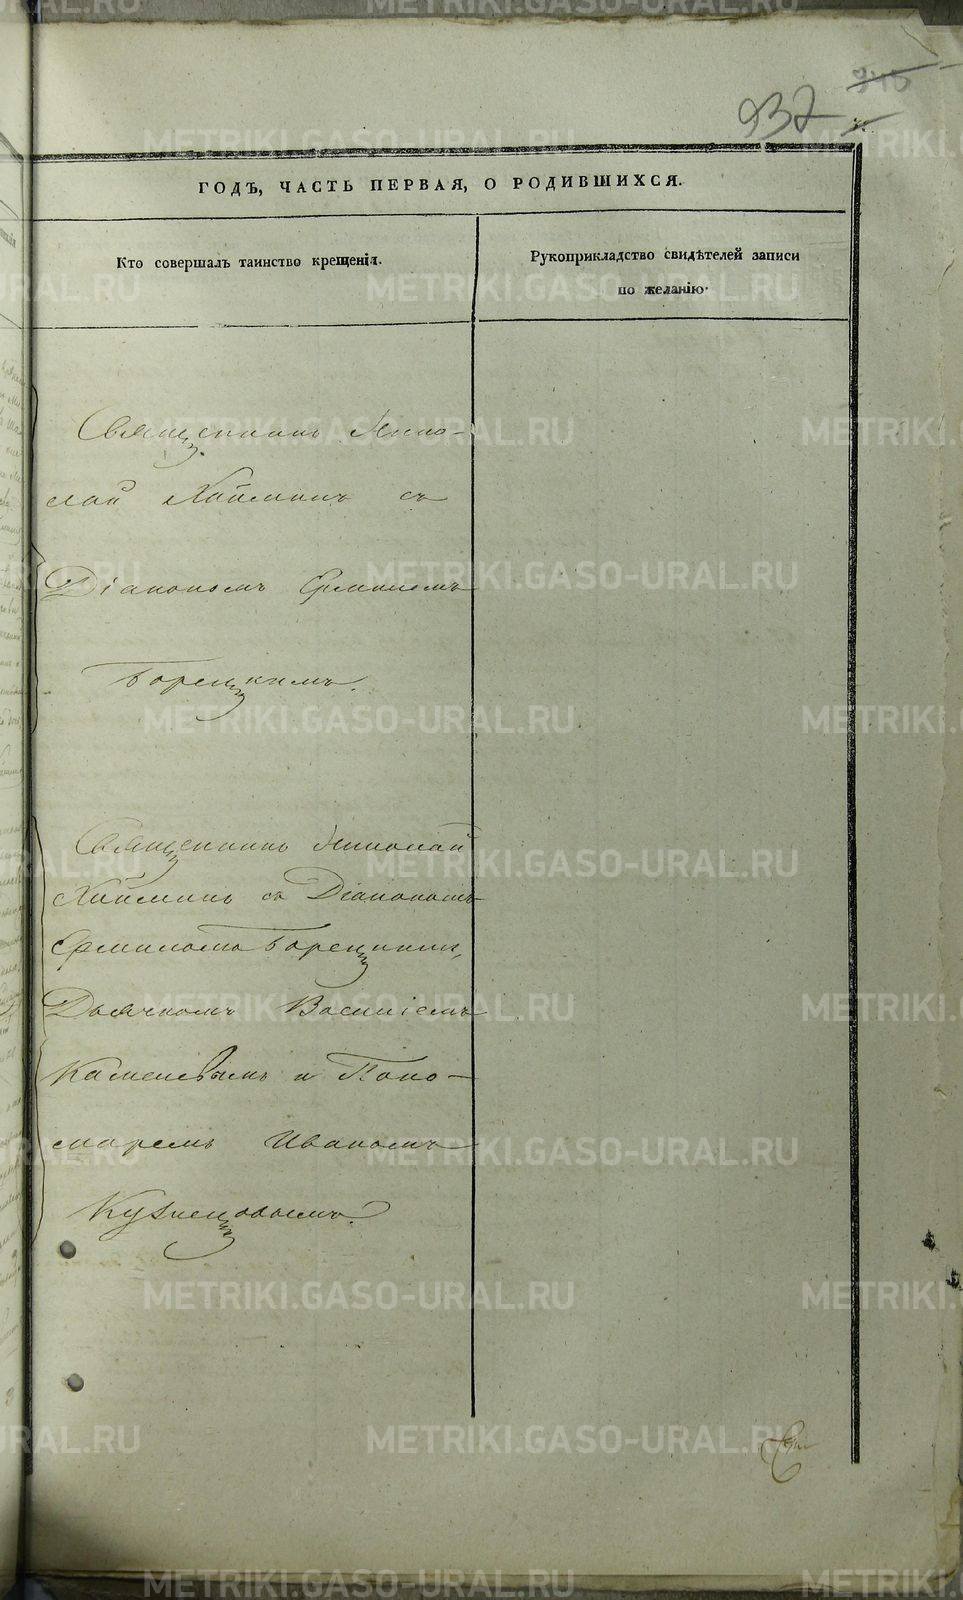 932
ГОДЪ, ЧАСТЬ ПЕРВАЯ, О РОДИВШИХСЯ.
Кто совершалъ таинство крещенія.
Рукоприкладство свидѣтелей записи
по желанію.
Священникъ Нико-
лай Хайминъ съ
Діакономъ Ермиломъ
Борецкимъ.
Священникъ Николай
Хайминъ съ Діакономъ
Ермиломъ Борецкимъ,
Дьячкомъ Василіемъ
Каменевымъ и Поно-
маремъ Иваномъ
Кузнецовымъ.
METRIKI.GASO-URAL.RU